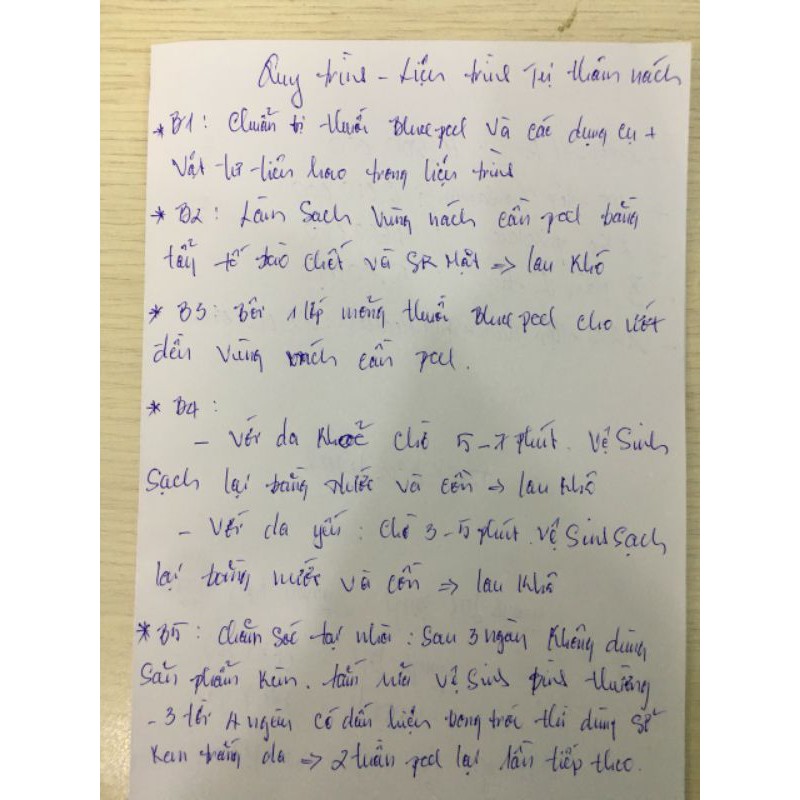 Quy trình - Liệu trình Trị thâm nách
* B1: Chuẩn bị thuốc Blue peel và các dụng cụ +
vật tư tiêu hao trong liệu trình
* B2: Làm sạch vùng nách cần peel bằng
tẩy tế bào chết và SR Mặt => lau khô
* B3: Bôi 1 lớp mỏng thuốc Blue peel cho ướt
đều vùng nách cần peel.
* B4:
- Với da khoẻ chờ 5-7 phút. Vệ Sinh
Sạch lại bằng nước và cồn => lau khô
- Với da yếu: chờ 3-5 phút. Vệ Sinh Sạch
lại bằng nước và cồn => lau khô
* B5: Chăm sóc tại nhà: Sau 3 ngày không dùng
Sản phẩm kem. tắm rửa vệ Sinh bình thường
- 3 tới 4 ngày có dấu hiệu bong tróc thì dùng SP
Kem trắng da => 2 tuần peel lại lần tiếp theo.